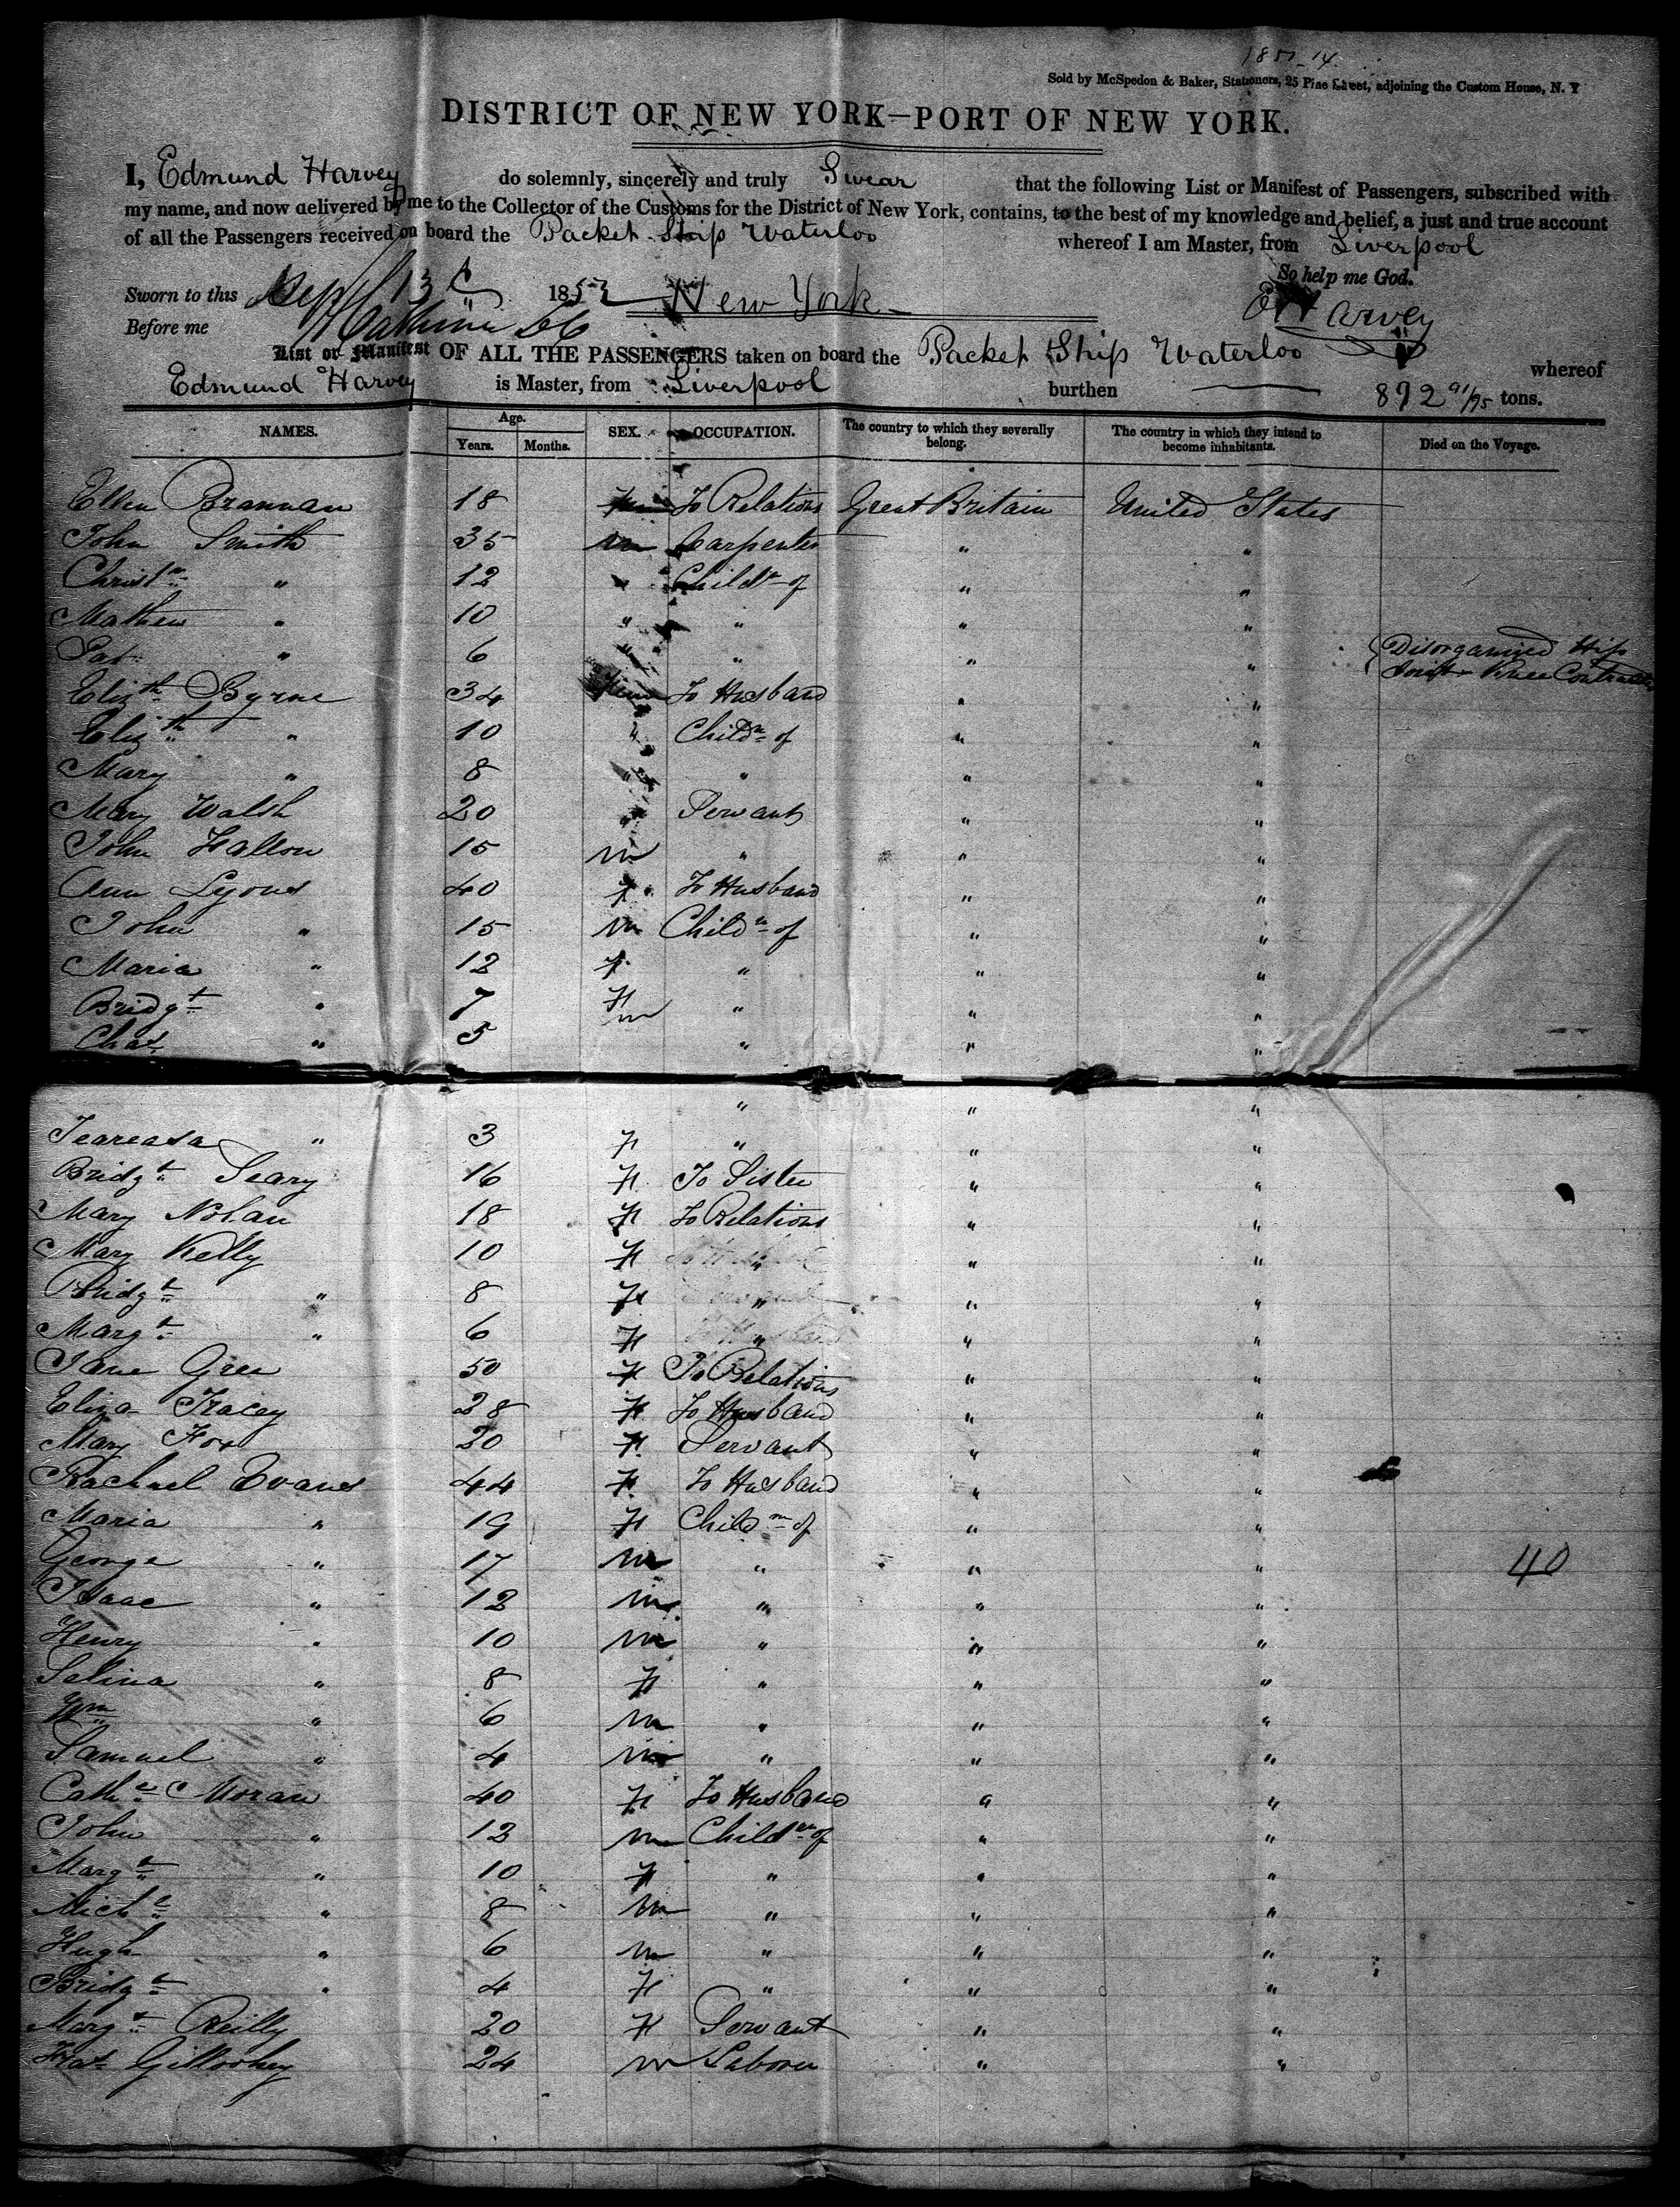 Sold by McSpedon & Baker, Stationers, 25 Pine Street, adjoining the Custom House, N. Y
DISTRICT OF NEW YORK—PORT OF NEW YORK.
I, Edmund Harvey do solemnly, sincerely and truly Swear that the following List or Manifest of Passengers, subscribed with
my name, and now delivered by me to the Collector of the Customs for the District of New York, contains, to the best of my knowledge and belief, a just and true account
of all the Passengers received on board the Packet Ship Waterloo whereof I am Master, from Liverpool
So help me God.
Sworn to this Sept 13 1852 New York
E Harvey
Before me
List or Manifest OF ALL THE PASSENGERS taken on board the Packet Ship Waterloo whereof
Edmund Harvey is Master, from Liverpool burthen 892 91/95 tons.
NAMES. Age. Years. Months. SEX. OCCUPATION. The country to which they severally belong. The country in which they intend to become inhabitants. Died on the Voyage.
Ellen Brannan 18 Fm To Relations Great Britain United States
John Smith 35 m Carpenter " "
Christr " 12 " Childn of " "
Mathew " 10 " " " "
Pat " 6 " " " " Disorganized Hip Joint Knee Contracted
Elizth Byrne 34 Fem To Husband " "
Elizth " 10 " Childn of " "
Mary " 8 " " " "
Mary Walsh 20 " Servant " "
John Fallon 15 m " " "
Ann Lyons 40 F To Husband " "
John " 15 m Childn of " "
Maria " 12 F " " "
Bridgt " 7 F " " "
Chas " 5 m " " "
" " "
Teareasa " 3 F " " "
Bridgt Seary 16 F To Sister " "
Mary Nolan 18 F To Relations " "
Mary Kelly 10 F " " "
Bridgt " 8 F " " "
Margt " 6 F " " "
Jane Gree 50 F To Relations " "
Eliza Tracey 28 F To Husband " "
Mary Fox 20 F Servant " "
Rachael Evans 44 F To Husband " "
Maria " 19 F Childn of " "
George " 17 m " " " 40
Isaac " 12 m " " "
Henry " 10 m " " "
Selina " 8 F " " "
Wm " 6 m " " "
Samuel " 4 m " " "
Cathe Moran 40 F To Husband " "
John " 12 m Childn of " "
Margt " 10 F " " "
Michl " 8 m " " "
Hugh " 6 m " " "
Bridgt " 4 F " " "
Margt Reilly 20 F Servant " "
Gillooley 24 m Laborer " "